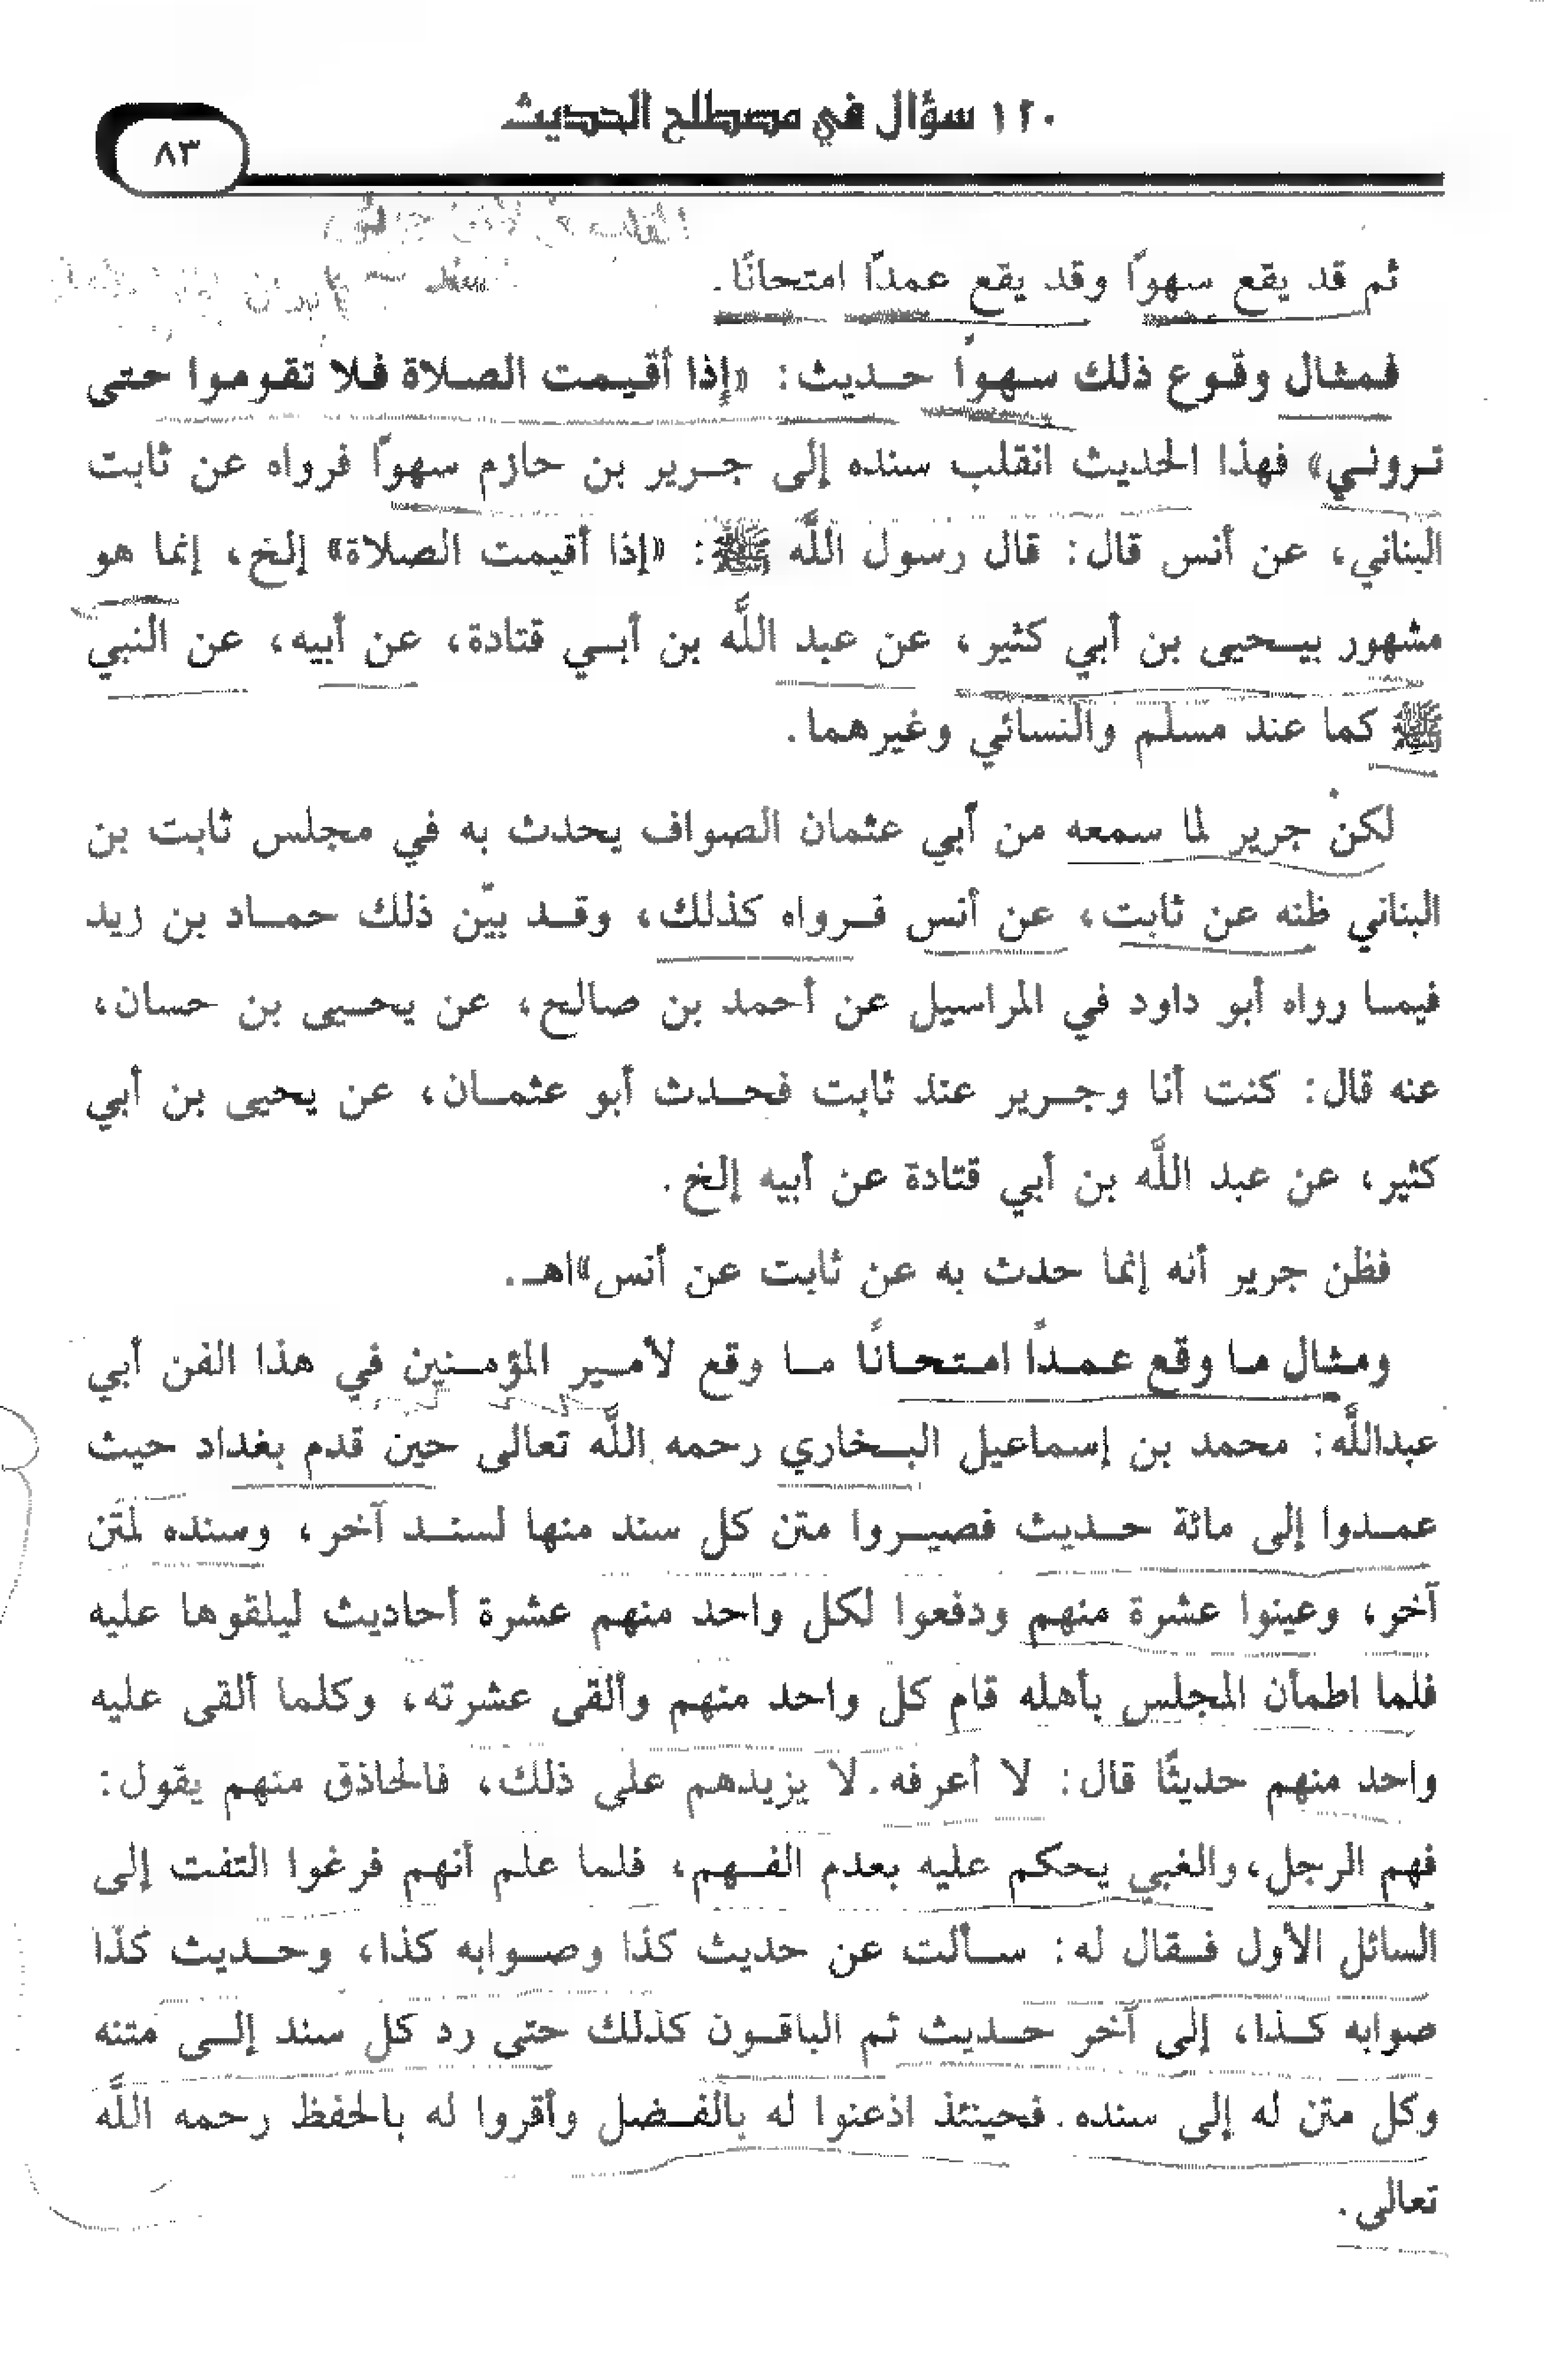 ١٢٠ سؤال في مصطلح الحديث
٨٣
ثم قد يقع سهواً وقد يقع عمداً امتحانًا.
فمثال وقوع ذلك سهواً حديث: «إذا أقيمت الصلاة فلا تقوموا حتى
تروني» فهذا الحديث انقلب سنده إلى جرير بن حازم سهواً فرواه عن ثابت
البناني، عن أنس قال: قال رسول اللَّه ﷺ: «إذا أقيمت الصلاة» إلخ، إنما هو
مشهور بيحيى بن أبي كثير، عن عبد اللَّه بن أبي قتادة، عن أبيه، عن النبي
ﷺ كما عند مسلم والنسائي وغيرهما.
لكنْ جرير لما سمعه من أبي عثمان الصواف يحدث به في مجلس ثابت بن
البناني ظنه عن ثابت، عن أنس فرواه كذلك، وقد بيّن ذلك حماد بن زيد
فيما رواه أبو داود في المراسيل عن أحمد بن صالح، عن يحيى بن حسان،
عنه قال: كنت أنا وجرير عند ثابت فحدث أبو عثمان، عن يحيى بن أبي
كثير، عن عبد اللَّه بن أبي قتادة عن أبيه إلخ.
فظن جرير أنه إنما حدث به عن ثابت عن أنس»اهـ.
ومثال ما وقع عمداً امتحانًا ما وقع لأمير المؤمنين في هذا الفن أبي
عبداللَّه: محمد بن إسماعيل البخاري رحمه اللَّه تعالى حين قدم بغداد حيث
عمدوا إلى مائة حديث فصيروا متن كل سند منها لسند آخر، وسنده لمتن
آخر، وعينوا عشرة منهم ودفعوا لكل واحد منهم عشرة أحاديث ليلقوها عليه
فلما اطمأن المجلس بأهله قام كل واحد منهم وألقى عشرته، وكلما ألقى عليه
واحد منهم حديثًا قال: لا أعرفه. لا يزيدهم على ذلك، فالحاذق منهم يقول:
فهم الرجل، والغبي يحكم عليه بعدم الفهم، فلما علم أنهم فرغوا التفت إلى
السائل الأول فقال له: سألت عن حديث كذا وصوابه كذا، وحديث كذا
صوابه كذا، إلى آخر حديث ثم الباقون كذلك حتى رد كل سند إلى متنه
وكل متن له إلى سنده. فحينئذ اذعنوا له بالفضل وأقروا له بالحفظ رحمه اللَّه
تعالى.